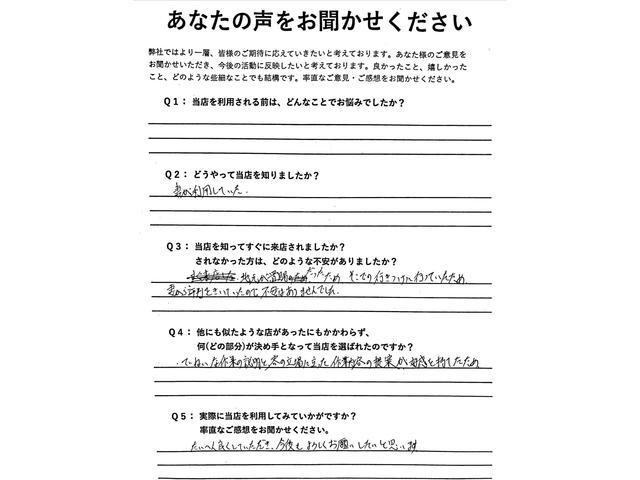 あなたの声をお聞かせください
弊社ではより一層、皆様のご期待に応えていきたいと考えております。あなた様のご意見を
お聞かせいただき、今後の活動に反映したいと考えております。良かったこと、嬉しかった
こと、どのような些細なことでも結構です。率直なご意見・ご感想をお聞かせください。
Q1： 当店を利用される前は、どんなことでお悩みでしたか？
Q2： どうやって当店を知りましたか？
妻が利用していた.
Q3： 当店を知ってすぐに来店されましたか？
されなかった方は、どのような不安がありましたか？
地元が静岡 だったため そこでの行きつけに行っていたため.
妻から評判をきいていたので、不安はありませんでした.
Q4： 他にも似たような店があったにもかかわらず、
何(どの部分)が決め手となって当店を選ばれたのですか？
・ていねいな作業の説明と、客の立場に立った作業内容の提案が好感を持てたため
Q5： 実際に当店を利用してみていかがですか？
率直なご感想をお聞かせください。
たいへん良くしていただき、今後もよろしくお願いしたいと思います